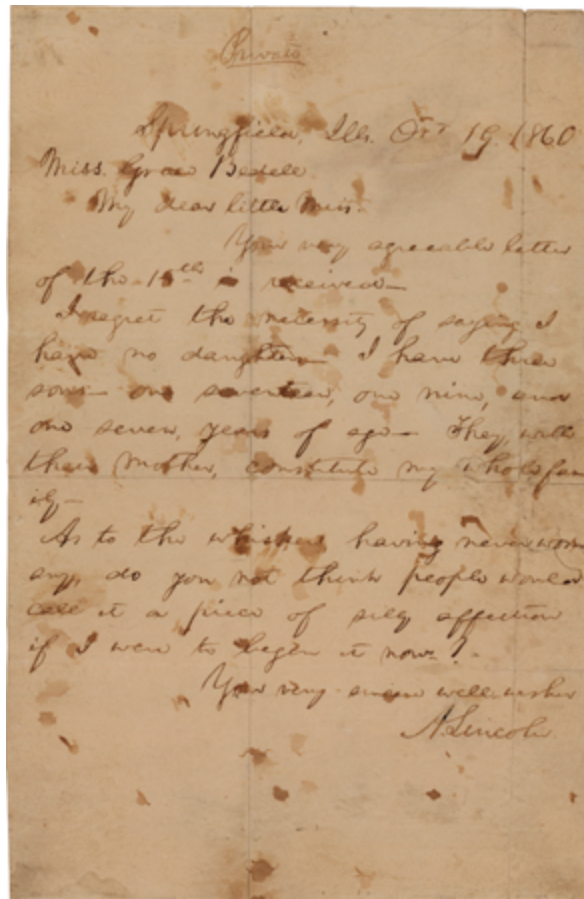 Private
Springfield, Ills. Oct 19. 1860
Miss. Grace Bedell
My dear little Miss.
Your very agreeable letter
of the 15th is received—
I regret the necessity of saying I
have no daughters— I have three
sons— one seventeen, one nine, and
one seven, years of age— They, with
their mother, constitute my whole fam
ily—
As to the whiskers having never worn
any, do you not think people would
call it a piece of silly affection
if I were to begin it now?
Your very sincere well-wisher
A. Lincoln.